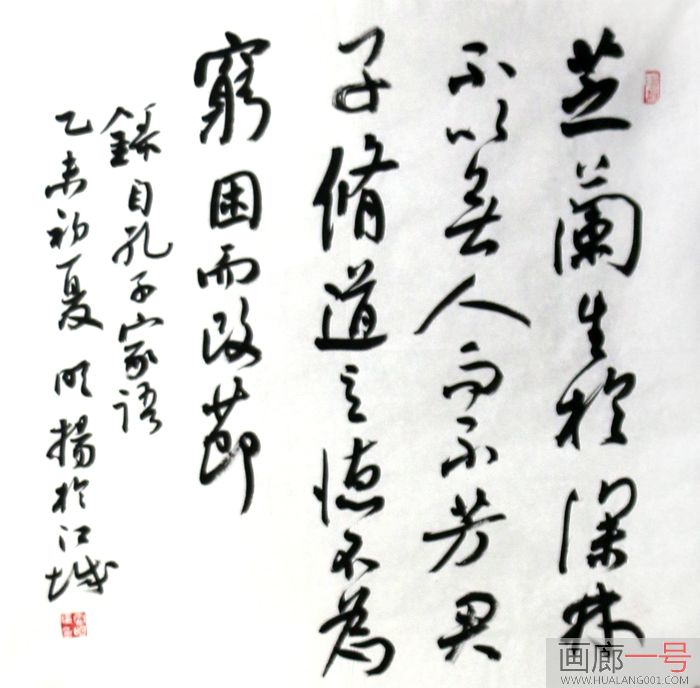 芝蘭生於深林
不以無人而不芳君
子脩道立德不為
窮困而改節
錄自孔子家语
乙未初夏明揚於江城
画廊一号
WWW.HUALANG001.COM